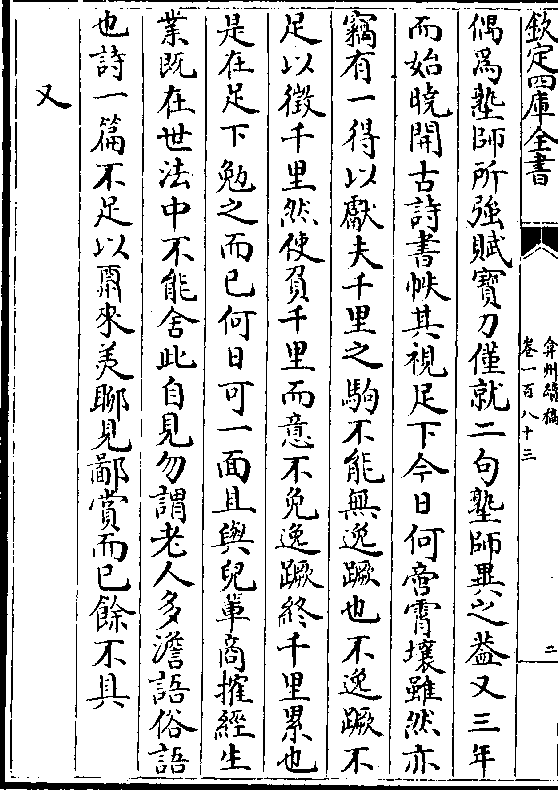 欽定四庫全書
弇州續稿
卷一百八十三
二
偶爲塾師所強賦寶刀僅就二句塾師異之葢又三年
而始曉開古詩書帙其視足下今日何啻霄壤雖然亦
竊有一得以獻夫千里之駒不能無逸蹶也不逸蹶不
足以徵千里然使負千里而意不免逸蹶終千里累也
是在足下勉之而已何日可一面且與兒軰商搉經生
業既在世法中不能舍此自見勿謂老人多澹語俗語
也詩一篇不足以酬來美聊見鄙賞而已餘不具
又